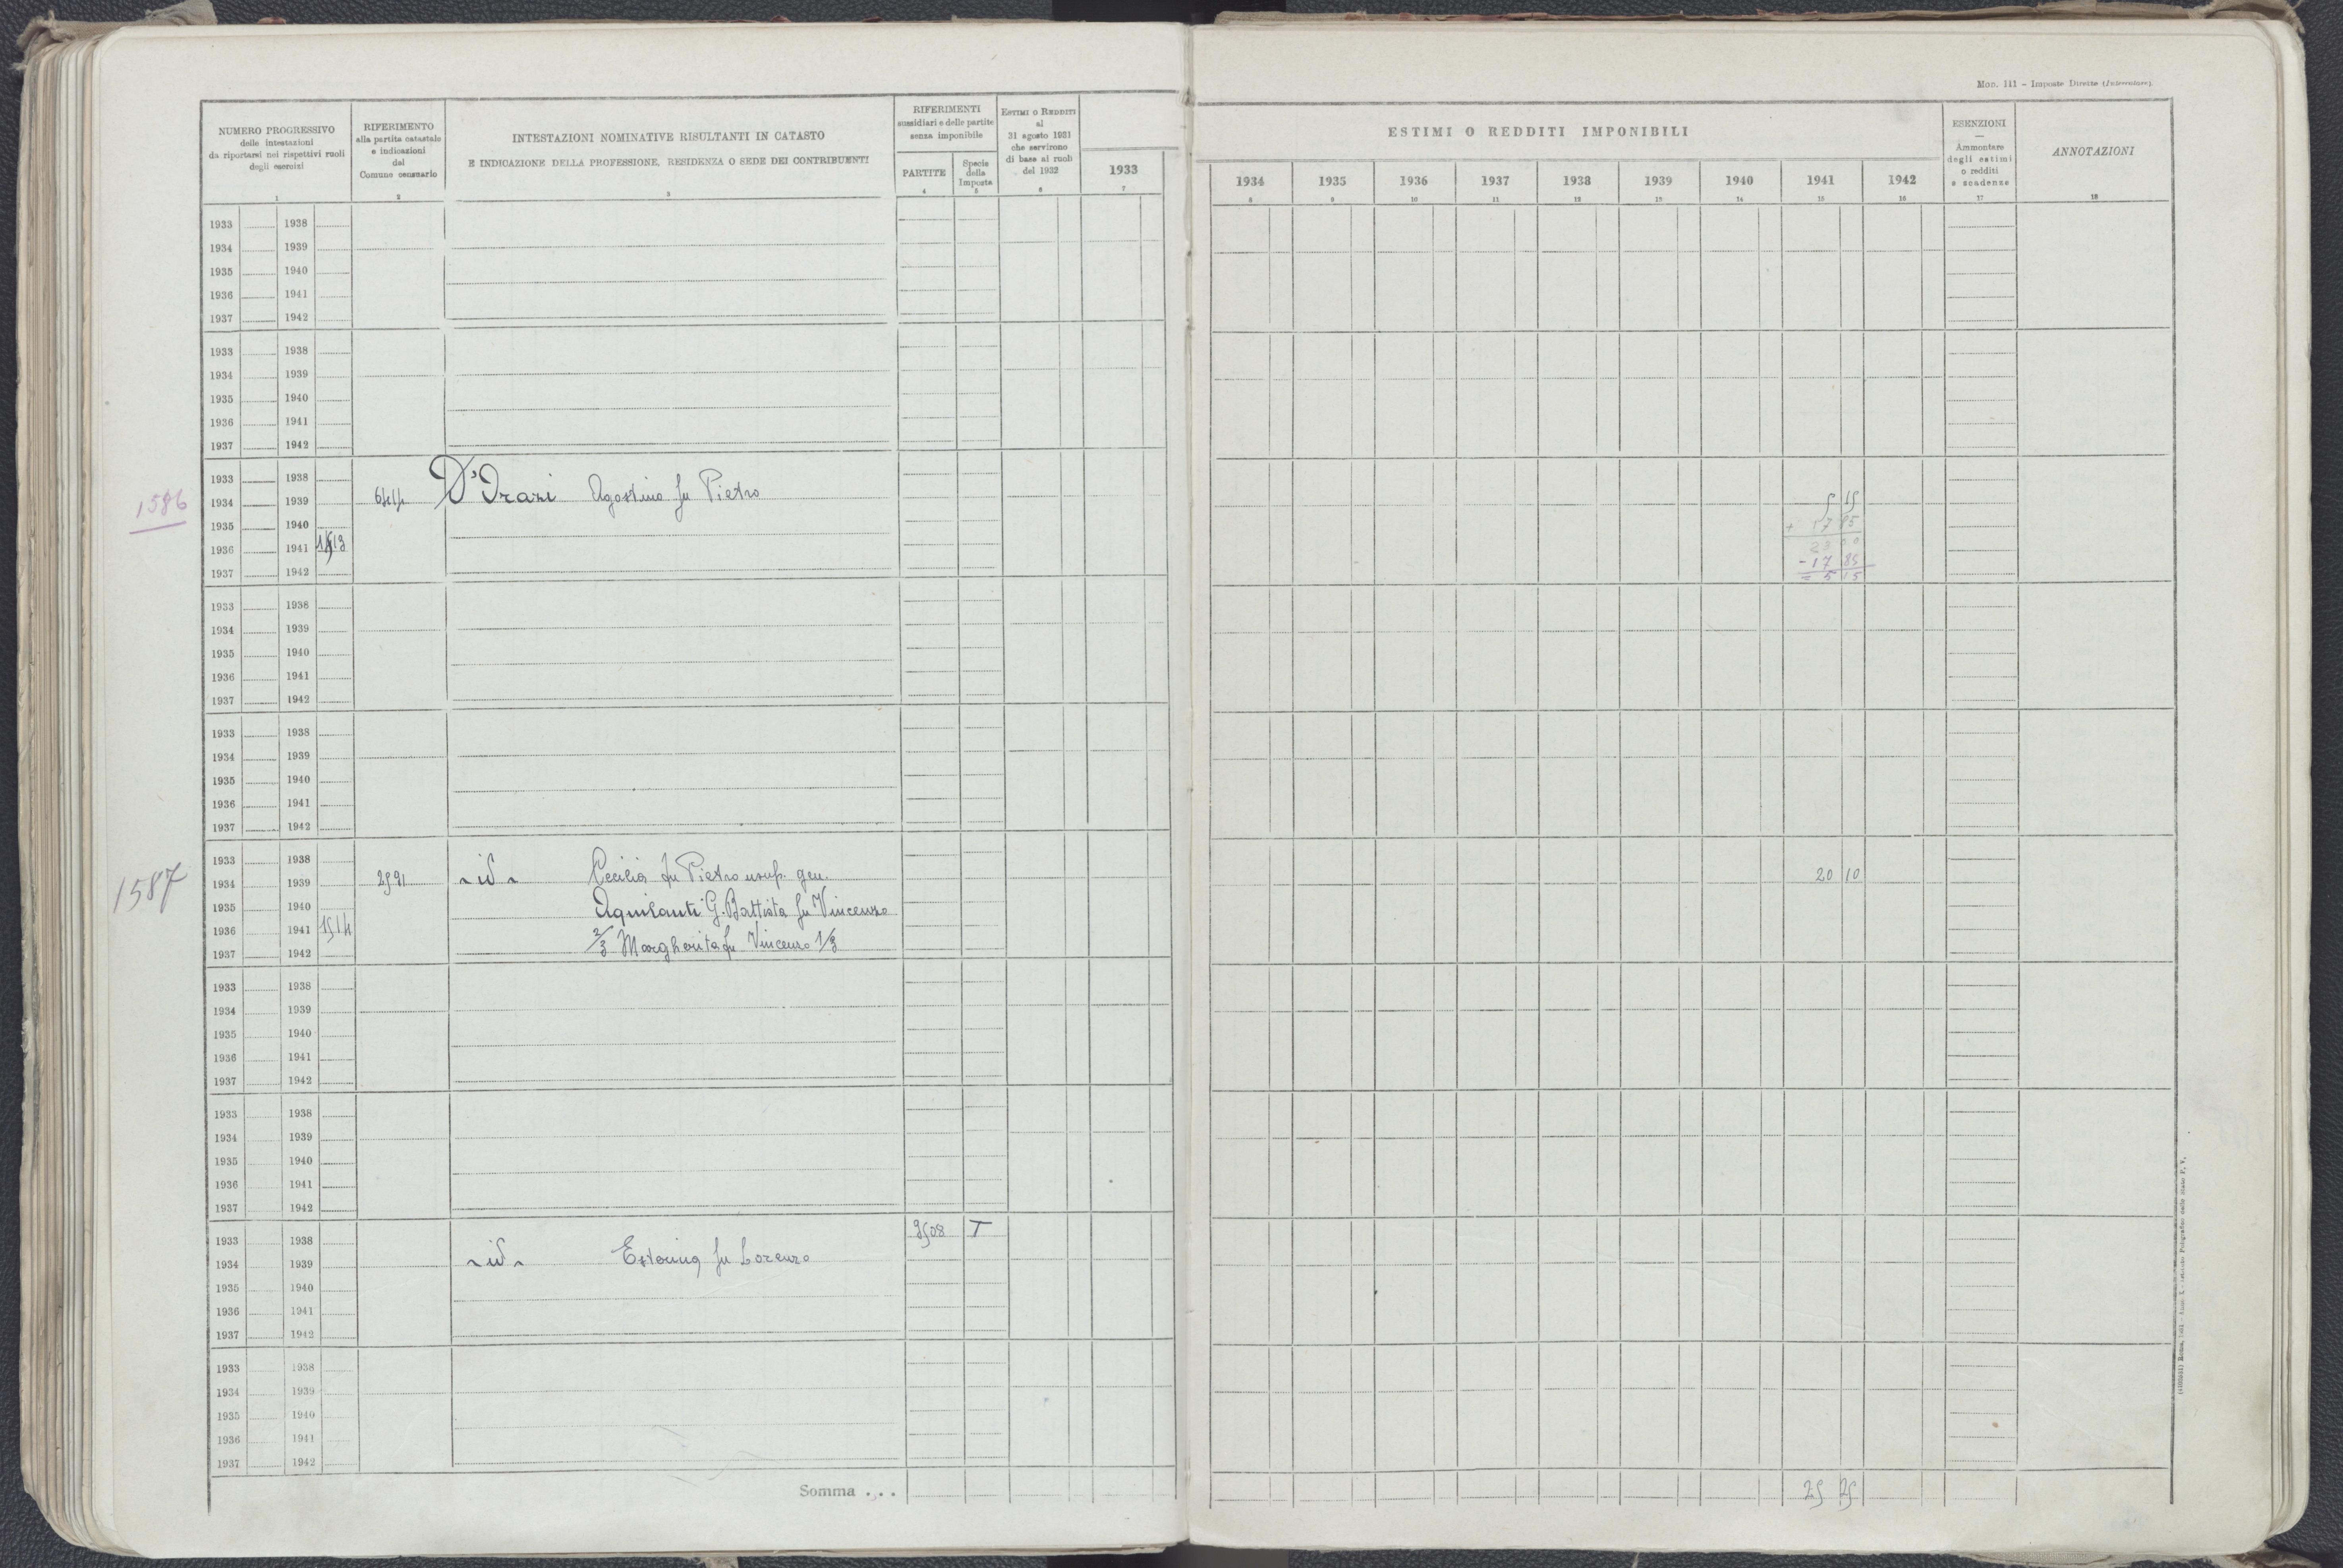 Mod. 111 - Imposte Dirette (Intercalare).
NUMERO PROGRESSIVO
delle intestazioni
da riportarsi nei rispettivi ruoli
degli esercizi
1
RIFERIMENTO
alla partita catastale
e indicazioni
del
Comune censuario
2
INTESTAZIONI NOMINATIVE RISULTANTI IN CATASTO
E INDICAZIONE DELLA PROFESSIONE, RESIDENZA O SEDE DEI CONTRIBUENTI
3
RIFERIMENTI
sussidiari e delle partite
senza imponibile
PARTITE
4
Specie
della
Imposta
5
ESTIMI O REDDITI
al
31 agosto 1931
che servirono
di base ai ruoli
del 1932
6
1933
7
ESTIMI O REDDITI IMPONIBILI
1934 1935 1936 1937 1938 1939 1940 1941 1942
8 9 10 11 12 13 14 15 16
ESENZIONI
—
Ammontare
degli estimi
o redditi
e scadenze
17
ANNOTAZIONI
18
1933 1938
1934 1939
1935 1940
1936 1941
1937 1942
1933 1938
1934 1939
1935 1940
1936 1941
1937 1942
1586
1933 1938
1934 1939 D'Orazi Agostino fu Pietro 5 15
1935 1940 + 17 85
1936 1941 1513 23 00
- 17 85
1937 1942 = 5 15
1933 1938
1934 1939
1935 1940
1936 1941
1937 1942
1933 1938
1934 1939
1935 1940
1936 1941
1937 1942
1587
1933 1938
1934 1939 2591 - id - Cecilia fu Pietro usuf. gen. 20 10
1935 1940 Aquilanti G. Battista fu Vincenzo
1936 1941 1514
1937 1942 2/3 Margherita fu Vincenzo 1/3
1933 1938
1934 1939
1935 1940
1936 1941
1937 1942
1933 1938
1934 1939
1935 1940
1936 1941
1937 1942
1933 1938 3508 T
1934 1939 - id - Esterina fu Lorenzo
1935 1940
1936 1941
1937 1942
1933 1938
1934 1939
1935 1940
1936 1941
1937 1942
Somma . . . 25 25